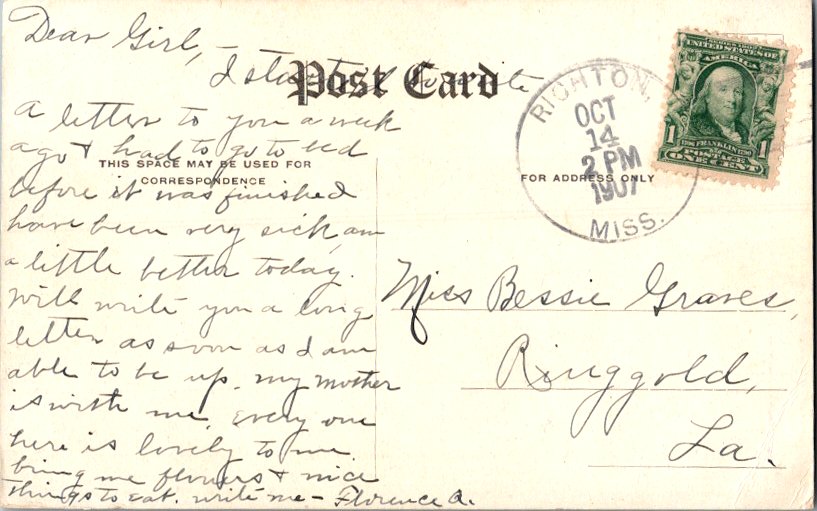 Dear Girl, -
I started to write
a letter to you a week
ago & had to go to bed
before it was finished
have been very sick, am
a little better today.
Will write you a long
letter as soon as I am
able to be up. My mother
is with me. Every one
here is lovely to me.
bring me flowers & nice
things to eat. Write me - Florence A.
Post Card
THIS SPACE MAY BE USED FOR
CORRESPONDENCE
FOR ADDRESS ONLY
RICHTON,
OCT
14
2 PM
1907
MISS.
SERIES 1902
UNITED STATES OF
AMERICA
1706 FRANKLIN 1790
POSTAGE
1 ONE CENT 1
Miss Bessie Graves,
Ringgold,
La.